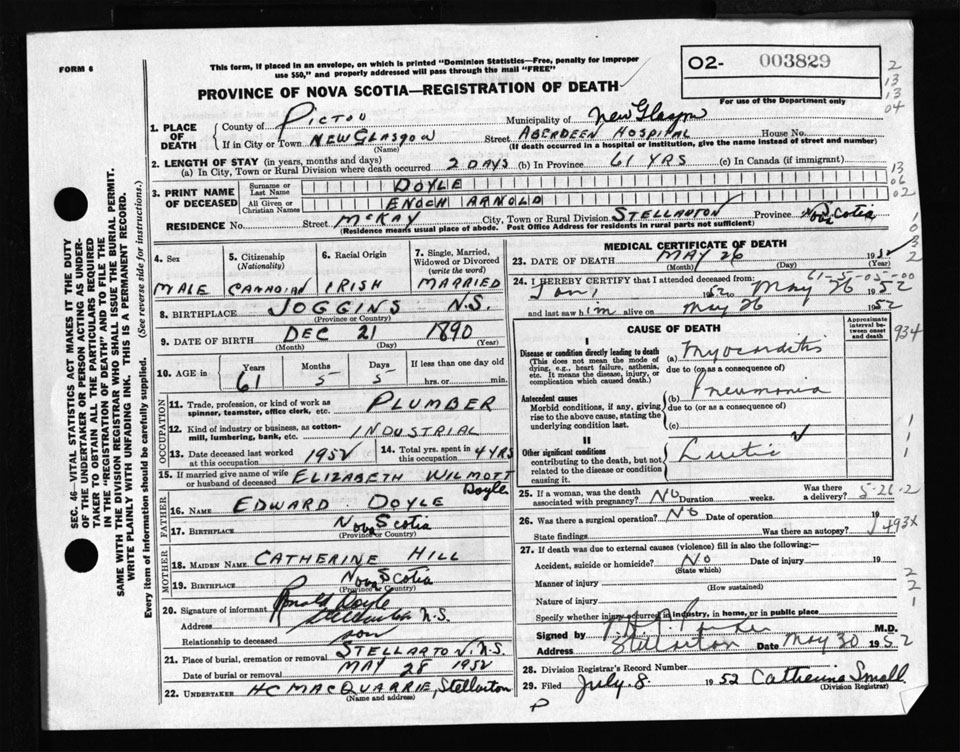 FORM 6
This form, if placed in an envelope, on which is printed "Dominion Statistics—Free, penalty for improper
use $50," and properly addressed will pass through the mail "FREE"
PROVINCE OF NOVA SCOTIA—REGISTRATION OF DEATH
O2- 003829
For use of the Department only
2
13
13
04
1. PLACE OF DEATH
County of PICTOU Municipality of New Glasgow
If in City or Town NEW GLASGOW Street ABERDEEN HOSPITAL House No.
(Name) (If death occurred in a hospital or institution, give the name instead of street and number)
2. LENGTH OF STAY (in years, months and days)
(a) In City, Town or Rural Division where death occurred 2 DAYS (b) In Province 61 YRS (c) In Canada (if immigrant)
13
06
02
3. PRINT NAME OF DECEASED
Surname or Last Name DOYLE
All Given or Christian Names ENOCH ARNOLD
RESIDENCE No. Street McKAY City, Town or Rural Division STELLARTON Province Nova Scotia
(Residence means usual place of abode. Post Office Address for residents in rural parts not sufficient)
4. Sex MALE
5. Citizenship (Nationality) CANADIAN
6. Racial Origin IRISH
7. Single, Married, Widowed or Divorced (write the word) MARRIED
8. BIRTHPLACE JOGGINS N.S.
(Province or Country)
9. DATE OF BIRTH DEC 21 1890
(Month) (Day) (Year)
10. AGE in Years 61 Months 5 Days 5 If less than one day old hrs. or min.
OCCUPATION
11. Trade, profession, or kind of work as spinner, teamster, office clerk, etc. PLUMBER
12. Kind of industry or business, as cotton-mill, lumbering, bank, etc. INDUSTRIAL
13. Date deceased last worked at this occupation 1952 14. Total yrs. spent in this occupation 4 YRS
15. If married give name of wife or husband of deceased ELIZABETH WILMOTT Doyle
FATHER
16. NAME EDWARD DOYLE
17. BIRTHPLACE Nova Scotia
(Province or Country)
MOTHER
18. MAIDEN NAME CATHERINE HILL
19. BIRTHPLACE Nova Scotia
(Province or Country)
20. Signature of informant Ronald Doyle
Address Stellarton N.S.
Relationship to deceased son
21. Place of burial, cremation or removal STELLARTON N.S.
Date of burial or removal MAY 28 1952
22. UNDERTAKER H C MACQUARRIE, Stellarton
(Name and address)
MEDICAL CERTIFICATE OF DEATH
23. DATE OF DEATH MAY 26 1952
(Month) (Day) (Year)
61-5-05-00
24. I HEREBY CERTIFY that I attended deceased from:
Jan, 1952 to May 26 1952
and last saw him alive on May 26 1952
CAUSE OF DEATH
Approximate interval between onset and death
934
I
Disease or condition directly leading to death
(This does not mean the mode of dying, e.g., heart failure, asthenia, etc. It means the disease, injury, or complication which caused death.)
(a) Myocarditis
due to (or as a consequence of)
Antecedent causes
Morbid conditions, if any, giving rise to the above cause, stating the underlying condition last.
(b) Pneumonia
due to (or as a consequence of)
(c)
II
Other significant conditions
contributing to the death, but not related to the disease or condition causing it.
25. If a woman, was the death associated with pregnancy? NO Duration weeks. Was there a delivery?
26. Was there a surgical operation? NO Date of operation 19
State findings Was there an autopsy?
493X
27. If death was due to external causes (violence) fill in also the following:—
Accident, suicide or homicide? No Date of injury 19
(State which)
Manner of injury
(How sustained)
Nature of injury
Specify whether injury occurred in industry, in home, or in public place
Signed by M.D.
Address Stellarton Date May 30 1952
28. Division Registrar's Record Number
29. Filed July 8 1952 Catherine Small
(Division Registrar)
SEC. 46—VITAL STATISTICS ACT MAKES IT THE DUTY
OF THE UNDERTAKER OR PERSON ACTING AS UNDER-
TAKER TO OBTAIN ALL THE PARTICULARS REQUIRED
IN THE "REGISTRATION OF DEATH" AND TO FILE THE
SAME WITH THE DIVISION REGISTRAR WHO SHALL ISSUE THE BURIAL PERMIT.
WRITE PLAINLY WITH UNFADING INK. THIS IS A PERMANENT RECORD.
Every item of information should be carefully supplied. (See reverse side for instructions.)